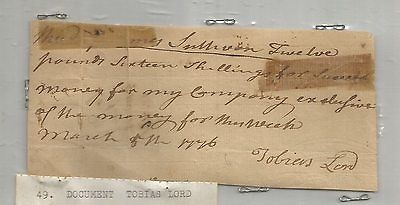 James Sullivan Twelve
pounds Sixteen Shillings for
money for my Company exclusive
of the money for this Week
March 1776
Tobias Lord
49. DOCUMENT TOBIAS LORD